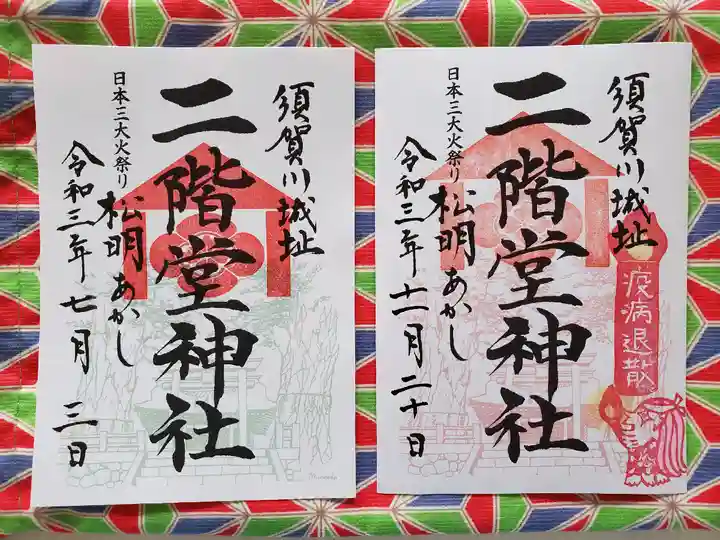 須賀川城址
二階堂神社
日本三大火祭り
松明あかし
令和三年七月三日
須賀川城址
疫病退散
二階堂神社
日本三大火祭り
松明あかし
令和三年十一月二十日